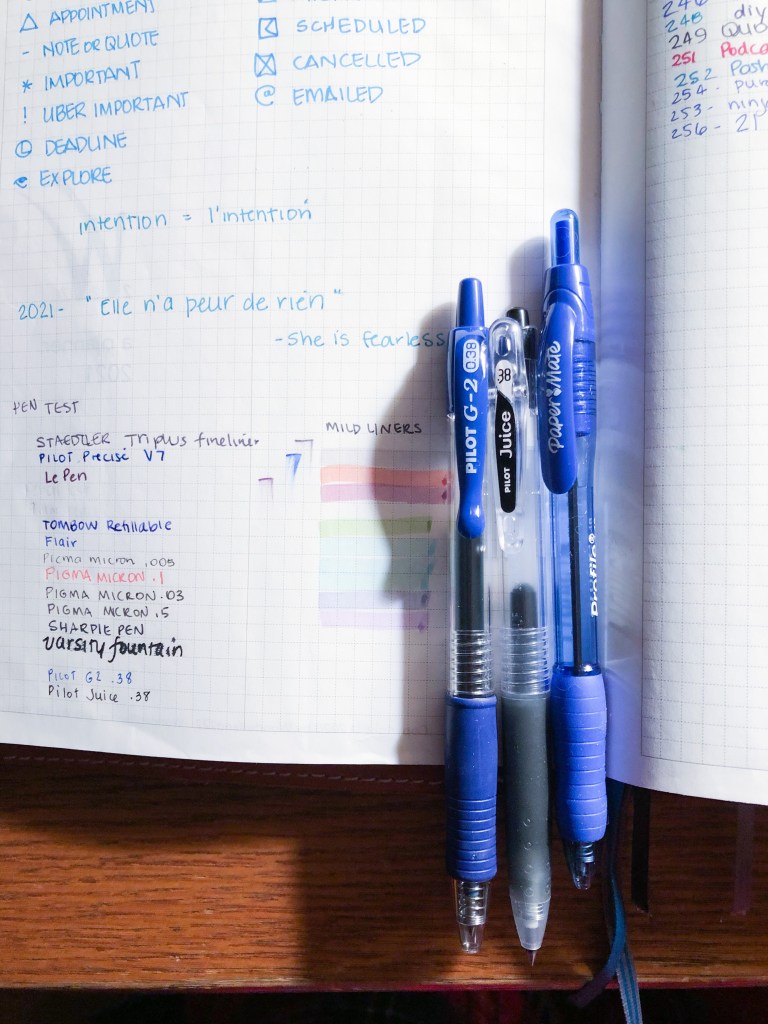 △ APPOINTMENT
- NOTE OR QUOTE
* IMPORTANT
! UBER IMPORTANT
DEADLINE
EXPLORE
SCHEDULED
CANCELLED
@ EMAILED
intention = l'intention
2021- "Elle n'a peur de rien"
-she is fearless
PEN TEST
STAEDTLER Triplus fineliner
PILOT Precise V7
Le Pen
TOMBOW Refillable
Flair
Pigma micron .005
PIGMA MICRON .1
PIGMA MICRON .03
PIGMA MICRON .5
SHARPIE PEN
varsity fountain
PILOT G2 .38
Pilot Juice .38
MILD LINERS
PILOT G-2 0.38
PILOT Juice 38
Paper Mate
Profile®
246
248 diy
249 Quo
251 Podca
252 Posh
254 - pur
253 - niny
256 - 21